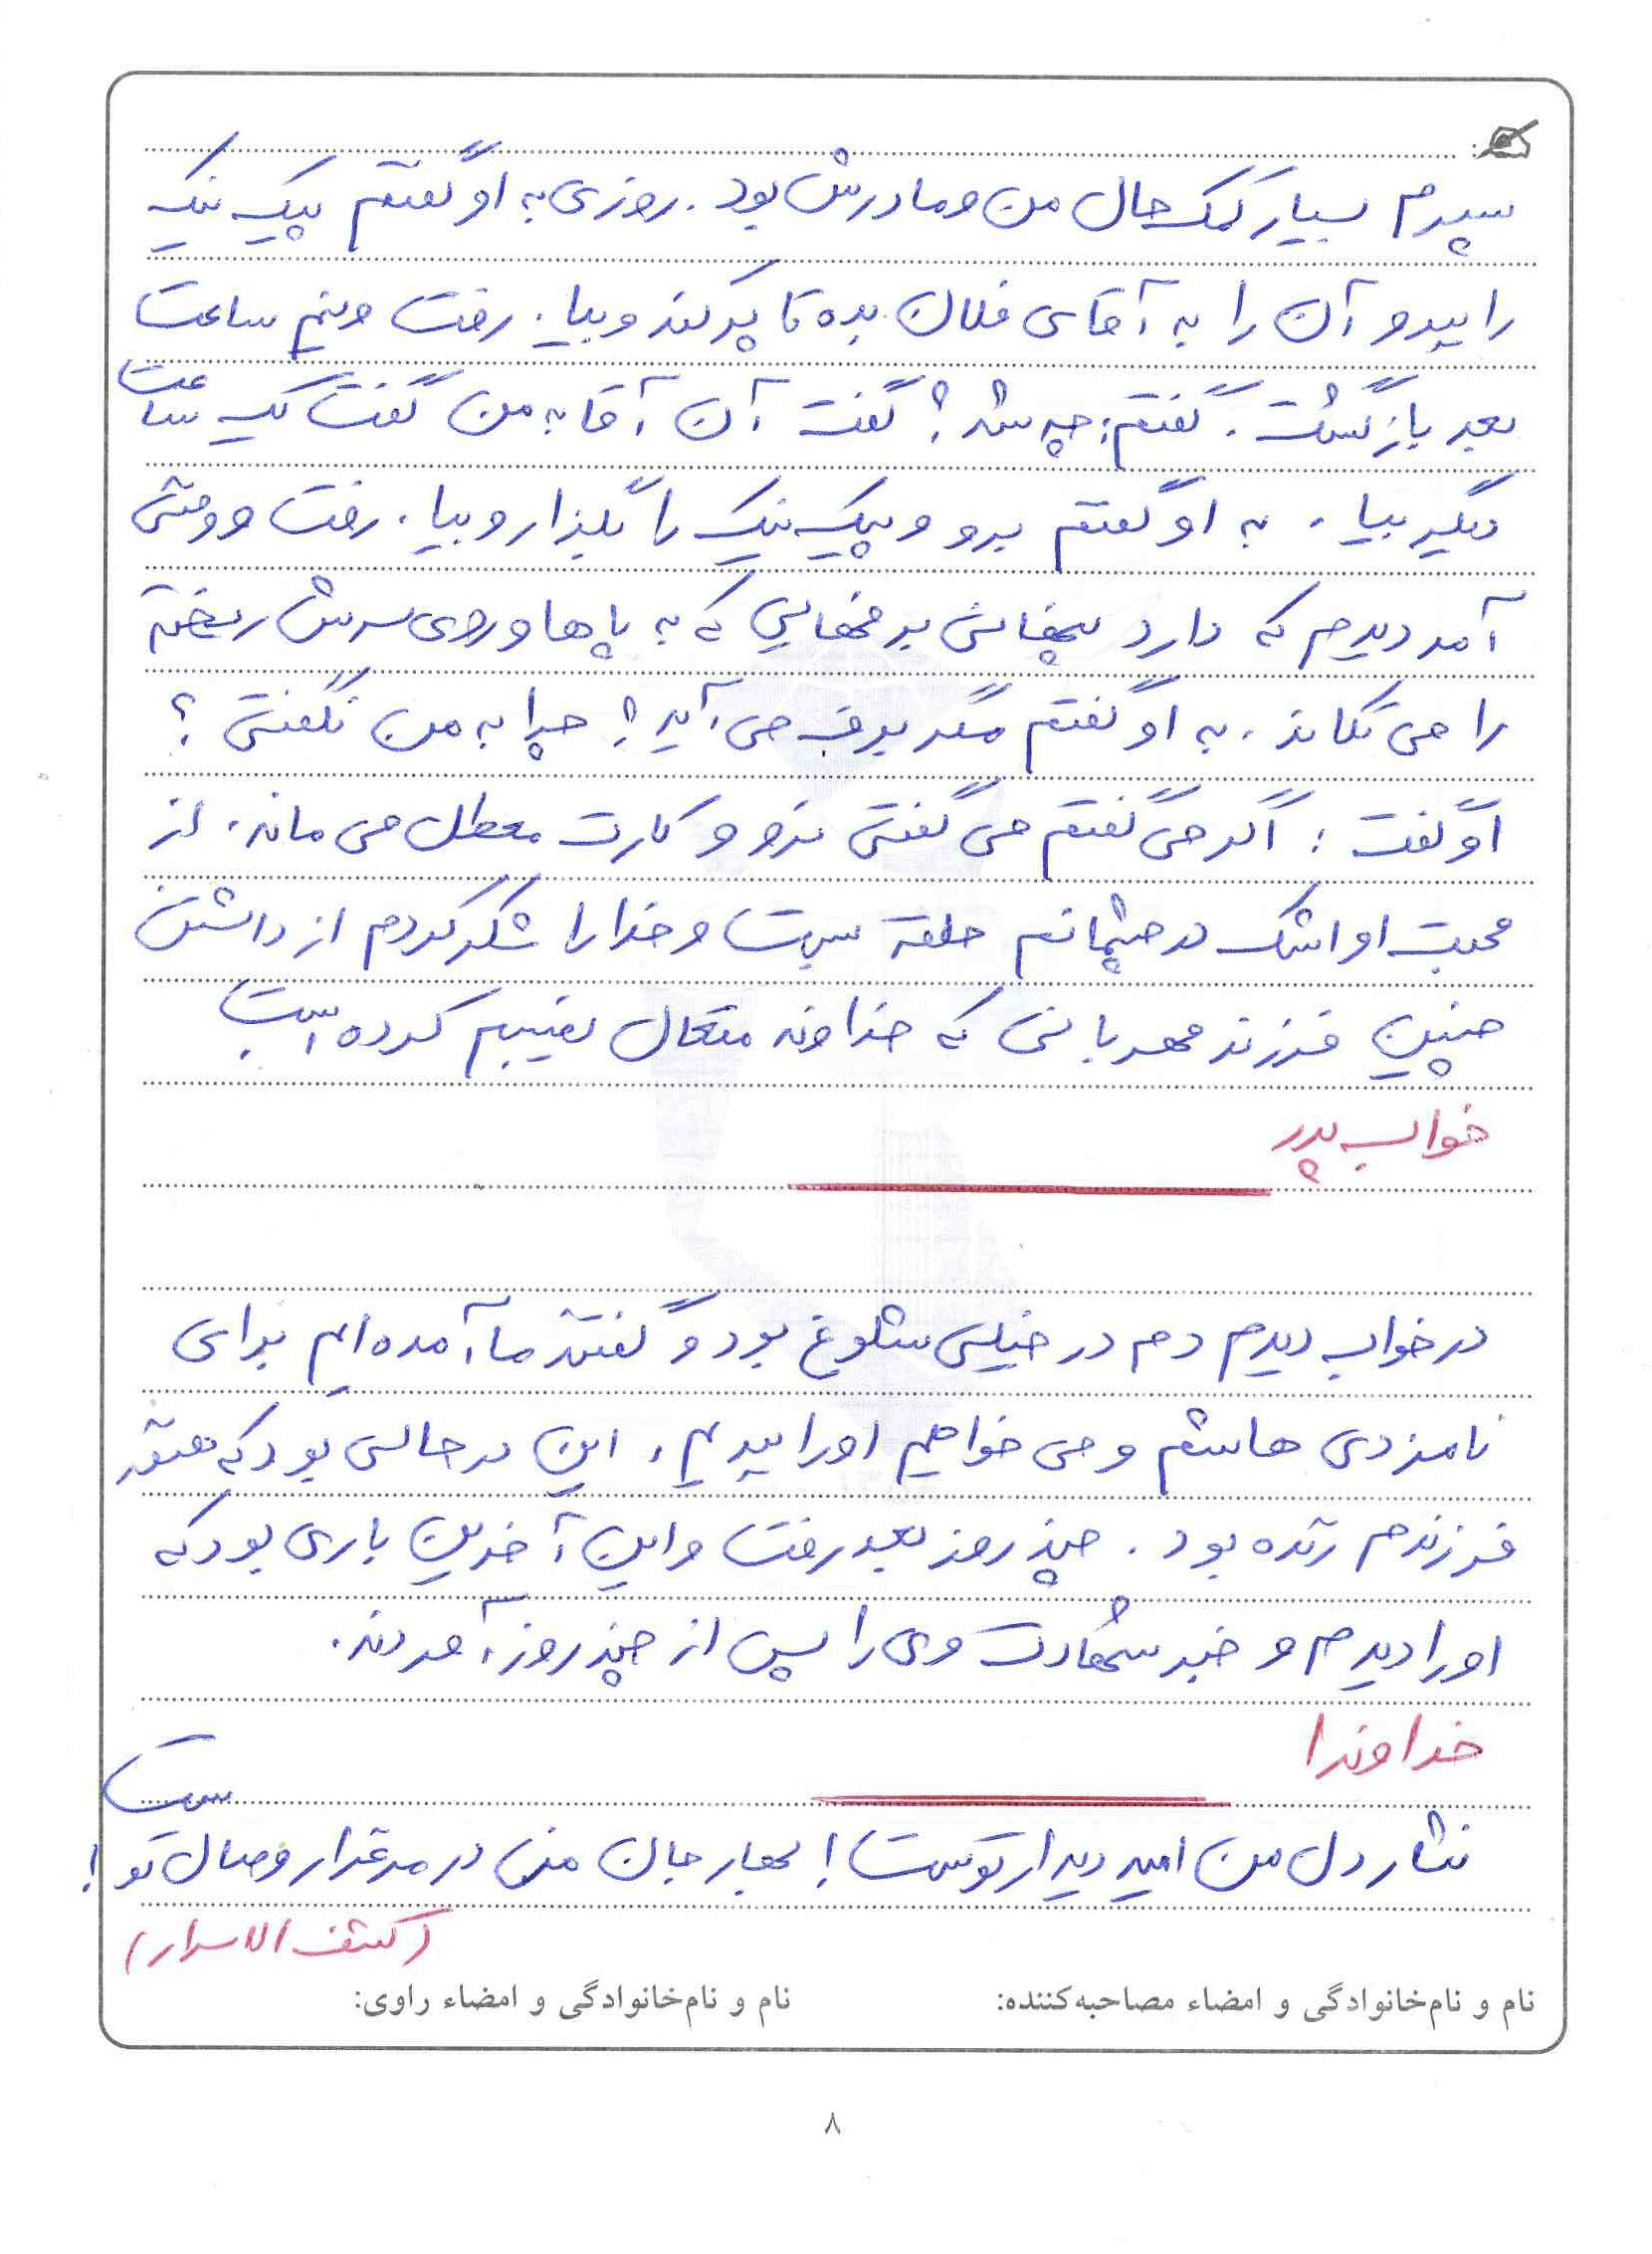 پسرم بسیار کمک حال من و مادرش بود. روزی به او گفتم پیک نیک
را ببر و آن را به آقای فلان بده تا پر کند و بیا. رفت و نیم ساعت
بعد بازگشت. گفتم: چه شد؟ گفت آن آقا به من گفت یک ساعت
دیگر بیا. به او گفتم برو و پیک نیک را بگذار و بیا. رفت و وقتی
آمد دیدم که دارد برفهایی که به پاها و روی سرش ریخته
را می تکاند. به او گفتم مگر برف می آید؟ چرا به من نگفتی؟
او گفت: اگر می گفتم می گفتی نرو و کارت معطل می ماند. از
محبت او اشک در چشمانم حلقه بست و خدا را شکر کردم از داشتن
چنین فرزند مهربانی که خداوند متعال نصیبم کرده است.
خواب پدر
در خواب دیدم دم در خیلی شلوغ بود و گفتند ما آمده ایم برای
نامزدی هاشم و می خواهیم او را ببریم. این در حالی بود که هنوز
فرزندم زنده بود. چند روز بعد رفت و این آخرین باری بود که
او را دیدم و خبر شهادت وی را پس از چند روز آوردند.
خداوندا
نثار دل من امید دیدار توست! بهار جان من در مرغزار وصال تو ست!
(کشف الاسرار)
نام و نام‌خانوادگی و امضاء مصاحبه‌کننده: نام و نام‌خانوادگی و امضاء راوی:
۸